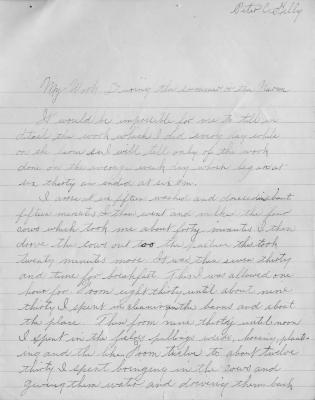 Peter C. Gilly
My Work During the summer on the Farm
It would be imposible for me to tell in
detail the work which I did every day while
on the farm so I will tell only of the work
done on the average week day which began at
six thirty an ended at six P.m.
I arose at six fifteen washed and dressed in about
fifteen minutes then went and milked the four
cows which took me about forty minutes. I then
drove the cows out too the pasture this took
twenty minutes more. It was then seven thirty
and time for breakfast. Then I was allowed one
hour for from eight thirty until about nine
thirty I spent in cleaning the barns and about
the place. Then from nine thirty until noon
I spent in the fields pulling weeds, hoeing, plant-
ing and the like. From twelve to about twelve
thirty I spent bringing in the cows and
giving them water and driving them back